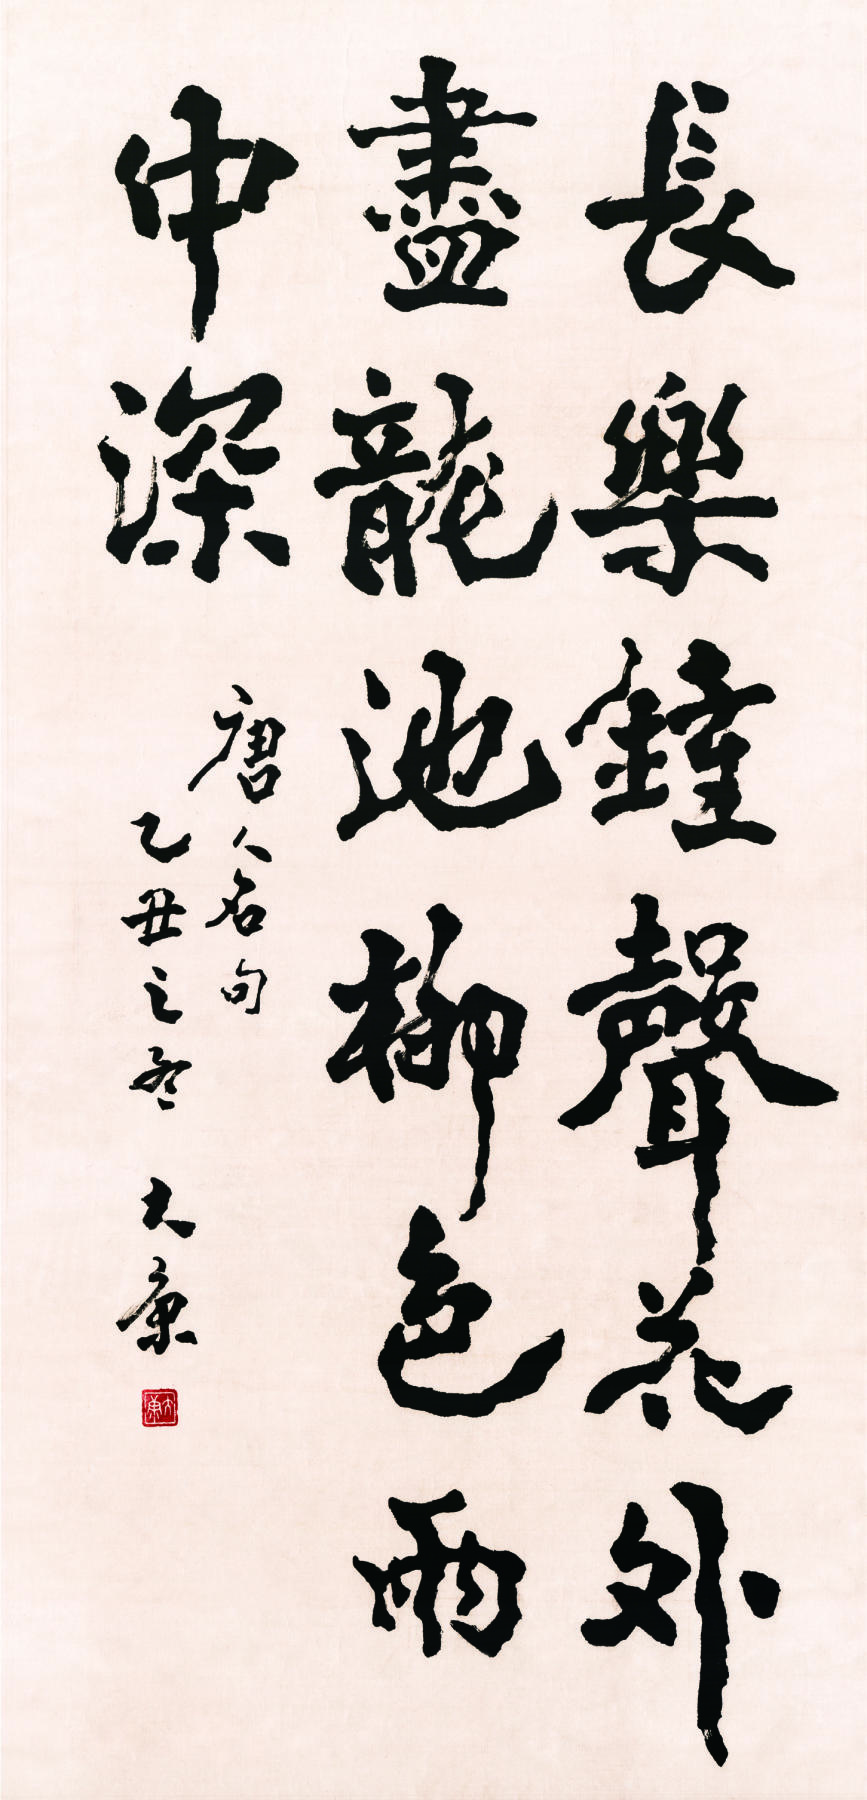 長樂鍾聲花外
盡龍池柳色雨
中深
唐人名句
乙丑之冬 大康
大康